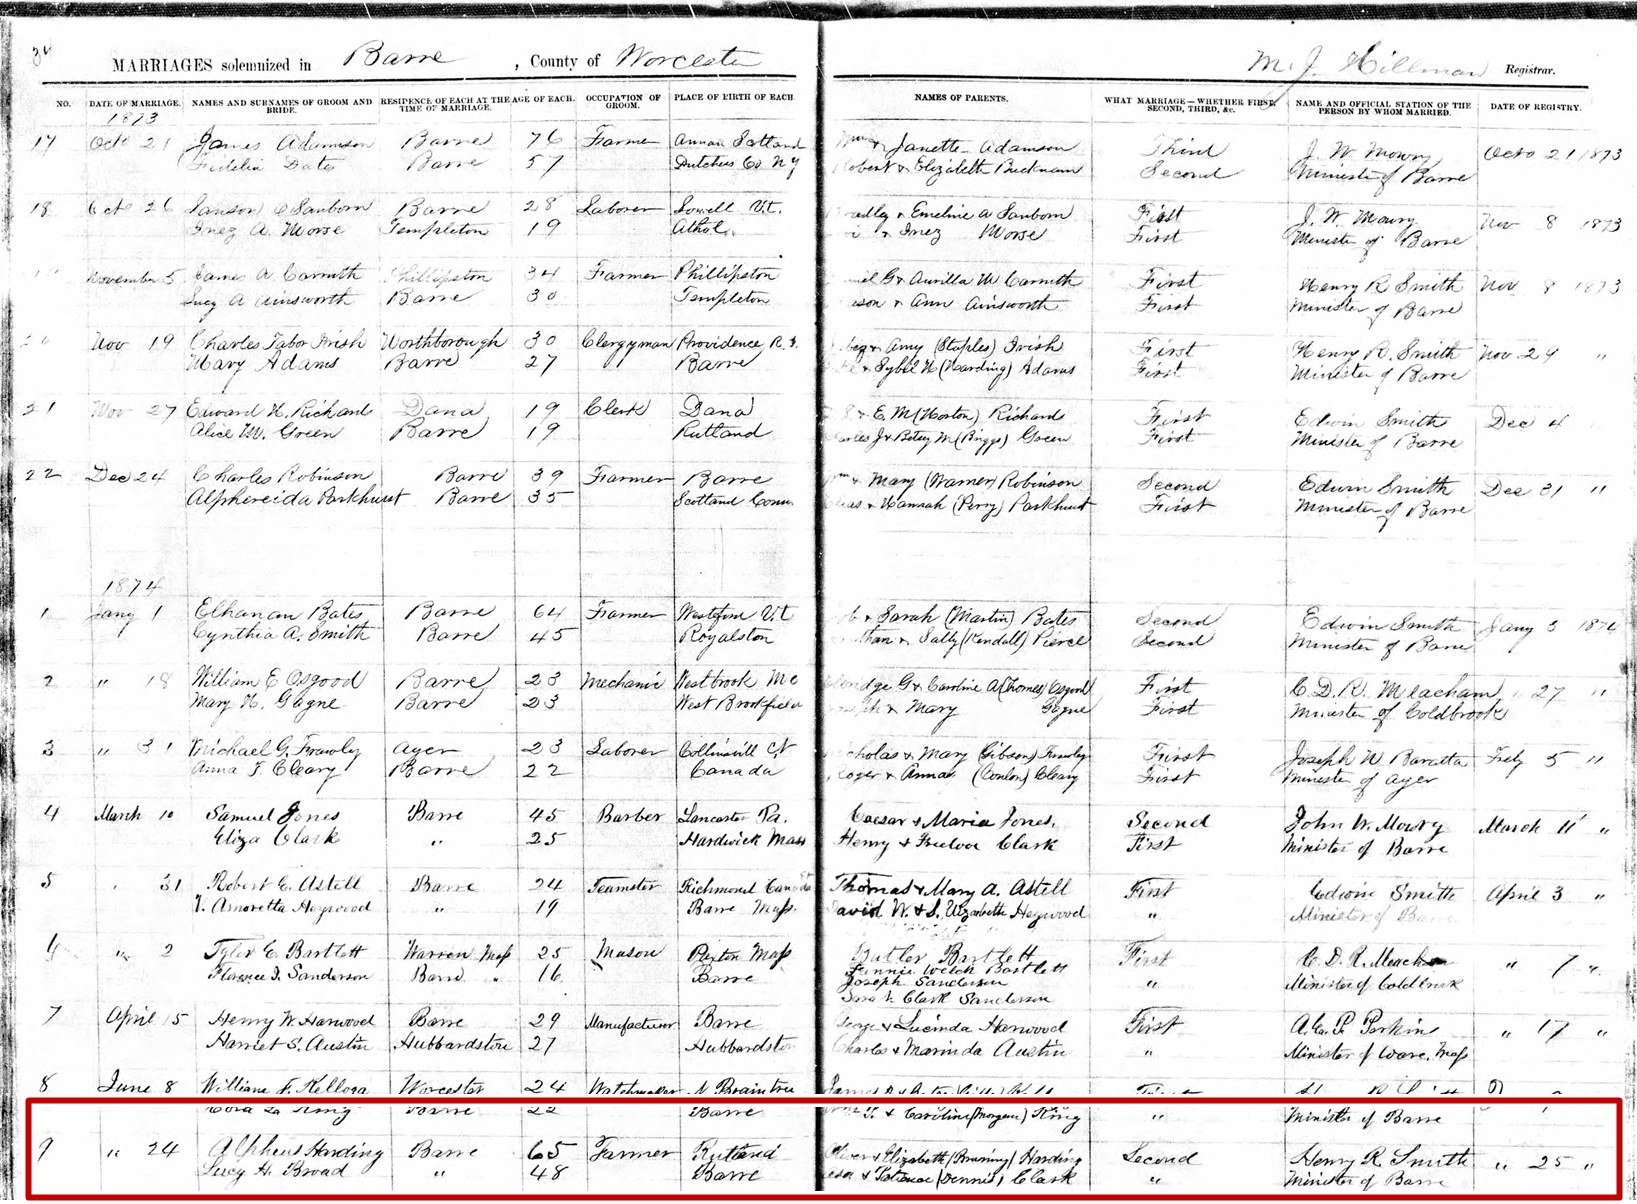 34
MARRIAGES solemnized in Barre, County of Worcester M. J. Hillman Registrar.
NO. DATE OF MARRIAGE. NAMES AND SURNAMES OF GROOM AND BRIDE. RESIDENCE OF EACH AT THE TIME OF MARRIAGE. AGE OF EACH. OCCUPATION OF GROOM. PLACE OF BIRTH OF EACH NAMES OF PARENTS. WHAT MARRIAGE—WHETHER FIRST, SECOND, THIRD, &c. NAME AND OFFICIAL STATION OF THE PERSON BY WHOM MARRIED. DATE OF REGISTRY.
1873
17 Octo 21 James Adamson Barre 76 Farmer Annan Scotland & Janette Adamson Third J. W. Mowry Octo 21 1873
Fidelia Bates Barre 57 Dutchess Co N Y obert & Elizabeth Buckman Second Minister of Barre
18 Oct 26 Sanborn Barre 28 Laborer Lowell Vt. radley & Emeline A Sanborn First J. W. Mowry Nov 8 1873
Inez A. Morse Templeton 19 Athol & Inez Morse First Minister of Barre
November 5 James A Carruth Phillipston 34 Farmer Phillipston G & Aurilla W Carruth First Henry R Smith Nov 8 1873
Lucy A Ainsworth Barre 30 Templeton son & Ann Ainsworth First Minister of Barre
20 Nov 19 Charles Tabor Irish Northborough 30 Clergyman Providence R. I. & Amy (Staples) Irish First Henry R. Smith Nov. 29 "
Mary Adams Barre 27 Barre & Sybel H (Harding) Adams First Minister of Barre
21 Nov 27 Edward H. Richard Dana 19 Clerk Dana & E. M (Horton) Richards First Edwin Smith Dec 4
Alice M. Green Barre 19 Rutland arles J & Betsy M (Briggs) Green First Minister of Barre
22 Dec 24 Charles Robinson Barre 39 Farmer Barre & Mary (Warner) Robinson Second Edwin Smith Dec 31 "
Alphereida Parkhurst Barre 35 Scotland Conn. & Hannah (Perry) Parkhurst First Minister of Barre
1874
1 Jany 1 Elhanan Bates Barre 64 Farmer Vt b & Sarah (Martin) Bates Second Edwin Smith Jany 5 1874
Cynthia A. Smith Barre 45 Royalston than & Sally (Kendall) Pierce Second Minister of Barre
2 " 18 William E Osgood Barre 23 Mechanic Westbrook Me G & Caroline A (Thomes) Osgood First C. D. R. Meacham " 27 "
Mary H. Gagne Barre 23 West Brookfield & Mary Gagne First Minister of Coldbrook
3 " 31 Michael G. Frawly Ayer 23 Laborer Collinsvill Ct cholas & Mary (Gibson) Frawley First Joseph W Baratta Feby 5 "
Anna F. Cleary Barre 22 Canada oger & Anna (Conlon) Cleary First Minister of Ayer
4 March 10 Samuel Jones Barre 45 Barber Lancaster Pa. Caesar & Maria Jones. Second John W. Mowry March 11 "
Eliza Clark " 25 Hardwick Mass Henry & Clark First Minister of Barre
5 " 31 Robert E. Astell Barre 24 Teamster Richmond Canada Thomas & Mary A. Astell First Edwin Smith April 3 "
V. Amoretta Heywood " 19 Barre Mass. David W. & S. Elizabeth Heywood " Minister of Barre
6 " 2 Tyler E. Bartlett Warren Mass 25 Mason Paxton Mass Butler Bartlett First C. D. R. Meacham " 7 "
Fannie Welch Bartlett
Florence I. Sanderson Barre " 16 Barre Joseph Sanderson " Minister of Coldbrook
Sara V. Clark Sanderson
7 April 15 Henry W. Harwood Barre 29 Manufacturer Barre & Lucinda Harwood First A. E. P. Perkins " 17 "
Harriet S. Austin Hubbardston 27 Hubbardston Charles & Marinda Austin " Minister of Ware, Mass
8 June 8 William F. Kellogg Worcester 24 Watchmaker N Braintree
Cora L. King Barre 22 Barre & Caroline (Morgan) King " Minister of Barre
9 " 24 Alpheus Harding Barre 65 Farmer Rutland Oliver & Elizabeth (Bruning) Harding Second Henry R. Smith " 25 "
Lucy H. Broad " 48 Barre & Patience (Dennis) Clark " Minister of Barre